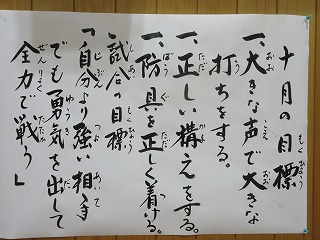 十月の目標
一、大きな声で大きな
打ちをする。
一、正しい構えをする。
一、防具を正しく着ける。
・試合の目標
「自分より強い相手
でも勇気を出して
全力で戦う」